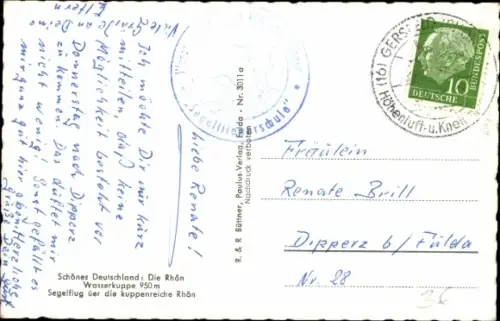 Liebe Renate!
Ich möchte Dir nur kurz
mitteilen, daß keine
Möglichkeit besteht vor
Donnerstag nach Dipperz
zu kommen. Das
nicht wenig! Sonst gefällt es
mir ganz gut hier oben.
Grüße Dein
Viele Grüße an Deine
Eltern
Segelfliegerschule
Schönes Deutschland: Die Rhön
Wasserkuppe 950 m
Segelflug üer die kuppenreiche Rhön
R. & R Büttner, Paulus-Verlag, Fulda - Nr. 3011a
Nachdruck verboten
(16) GERSFELD
Höhenluft- u. Kneip
10
DEUTSCHE
BUNDESPOST
Fräulein
Renate Brill
Dipperz b/ Fulda
Nr. 28